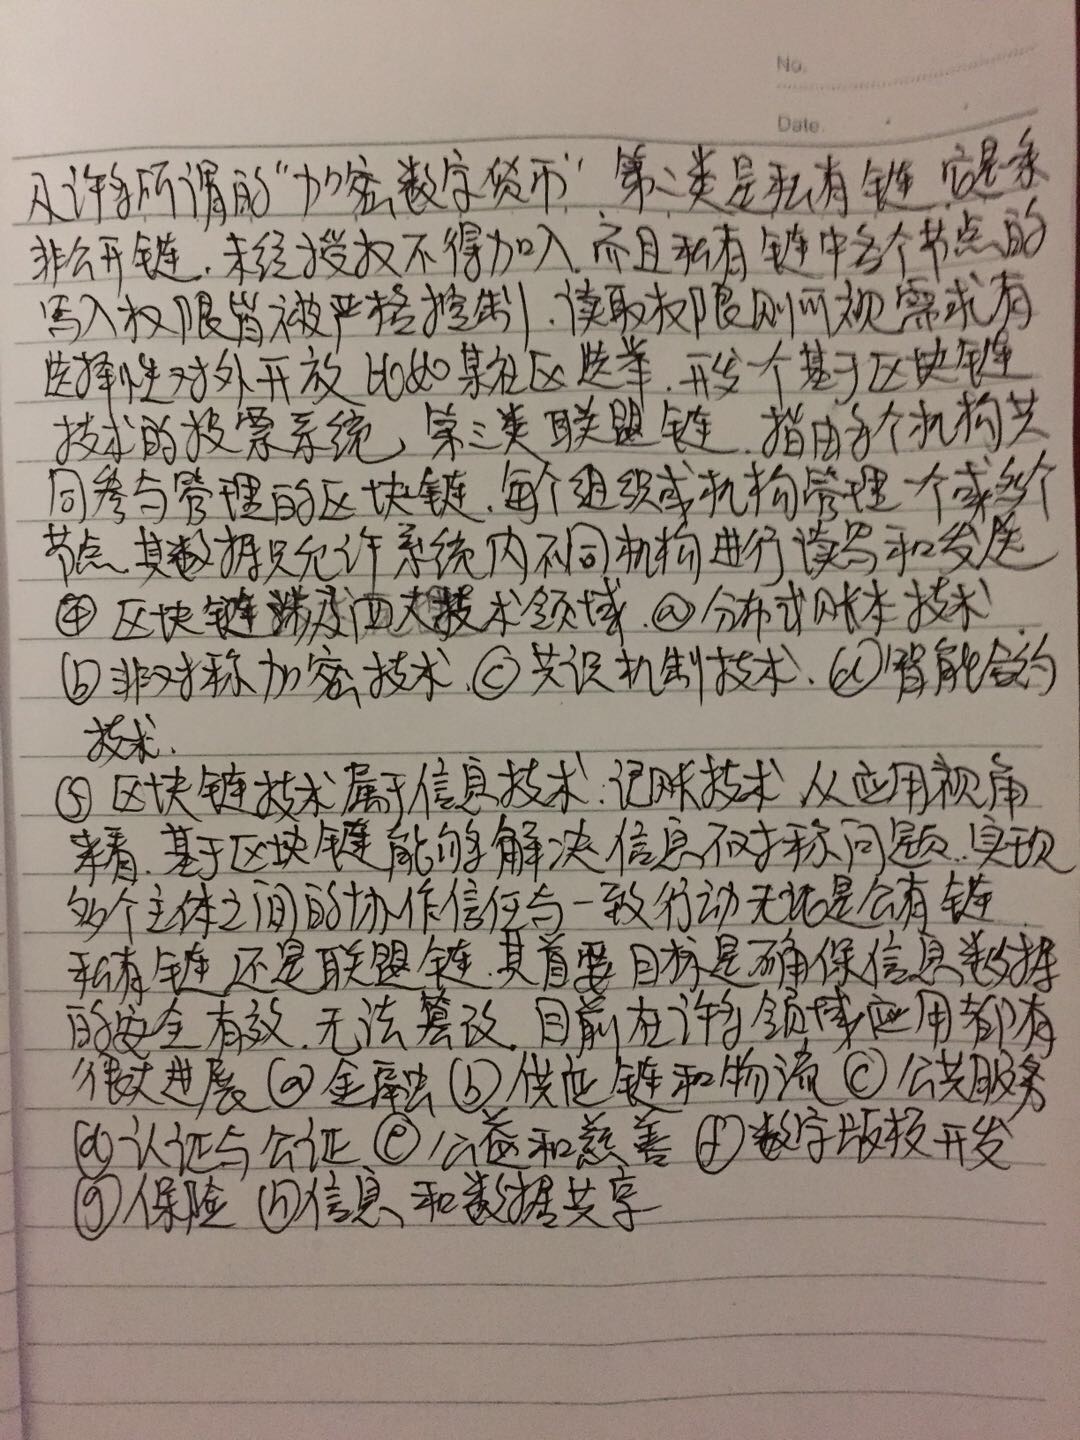 No.
Date.
及许多所谓的“加密数字货币” 第二类是私有链,它是系
非公开链,未经授权不得加入,而且私有链中各个节点的
写入权限皆被严格控制,读取权限则可视需求有
选择性对外开放 比如某社区选举,开发一个基于区块链
技术的投票系统,第三类联盟链,指由多个机构共
同参与管理的区块链,每个组织或机构管理一个或多个
节点,其数据只允许系统内不同机构进行读写和发送
④ 区块链涉及四大技术领域.ⓐ分布式账本技术
ⓑ非对称加密技术.ⓒ共识机制技术.ⓓ智能合约
技术.
⑤ 区块链技术属于信息技术:记账技术 从应用视角
来看.基于区块链能够解决信息不对称问题.实现
多个主体之间的协作信任与一致行动无论是公有链
私有链还是联盟链.其首要目标是确保信息数据
的安全有效.无法篡改.目前在许多领域应用都有
很大进展 ⓐ金融 ⓑ供应链和物流 ⓒ公共服务
ⓓ认证与公证 ⓔ公益和慈善 ⓕ数字版权开发
ⓖ保险 ⓗ信息和数据共享